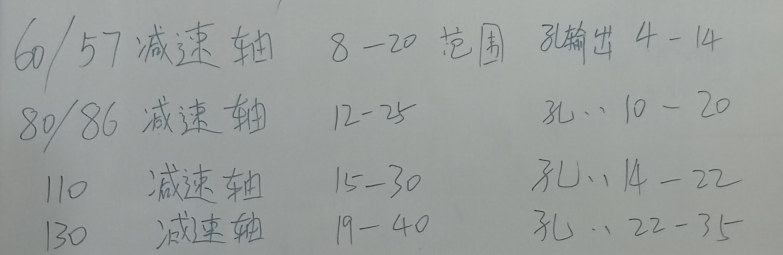 60/57 减速轴 8-20 范围 孔输出 4-14
80/86 减速轴 12-25 孔·· 10-20
110 减速轴 15-30 孔·· 14-22
130 减速轴 19-40 孔·· 22-35